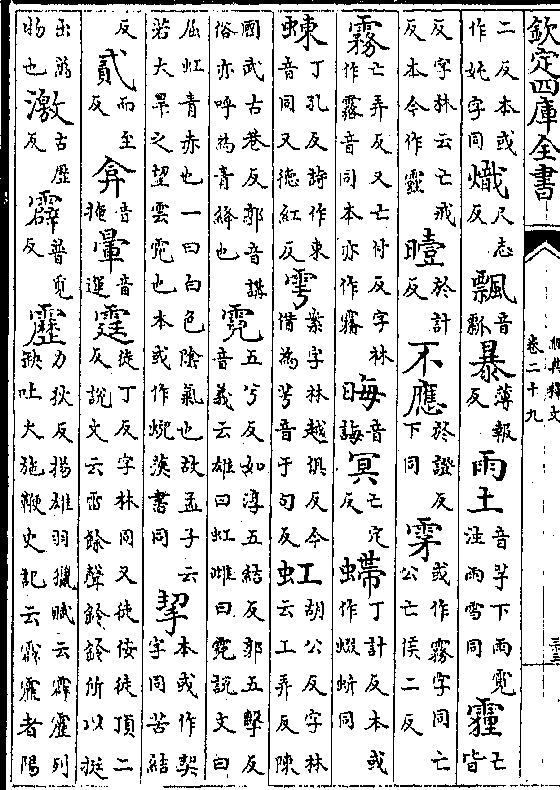 欽定四庫全書
經典釋文
卷二十九
二反本或作㚰字同熾尺志反飄音瓢暴薄報反雨土音芋下雨霓注雨雪同霾亡皆
反字林云亡戒反本今作霾曀於計反不應於證反下同雺或作霧字同亡公亡侯二反
霧亡弄反又亡付反字林作霿音同本亦作霧晦音誨冥亡定反螮丁計反本或作蝃蚚同
蝀丁孔反詩作東音同又德紅反雩案字林越俱反今借為芌音于句反虹胡公反字林云工弄反陳
國武古巷反郭音講俗亦呼為青絳也霓五兮反如淳五結反郭五擊反音義云雄曰虹雌曰霓說文曰
屈虹青赤也一曰白色陰氣也故孟子云若大旱之望雲霓也本或作蜺漢書同挈本或作契字同苦結
反貳而至反弇音掩暈音運霆徒丁反字林同又徒佞徒頂二反說文云雷餘聲鈴鈴所以挺
出萬物也激古歷反霹普覓反靂力狄反揚雄羽獵賦云霹靂列缺吐火施鞭史記云霹靂者陽